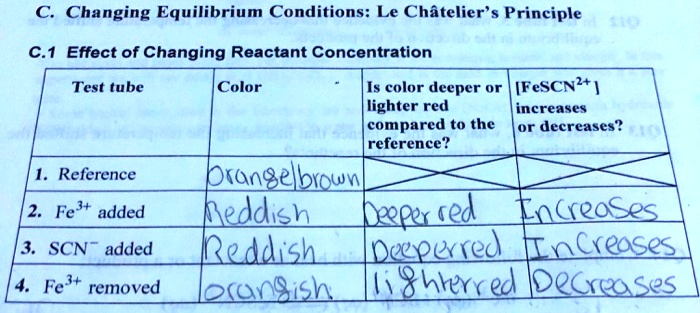 C. Changing Equilibrium Conditions: Le Châtelier's Principle
C.1 Effect of Changing Reactant Concentration
Test tube
Color
Is color deeper or
lighter red
compared to the
reference?
[FeSCN²⁺]
increases
or decreases?
1. Reference
Orange/brown
2. Fe³⁺ added
Reddish
Deeper red
Increases
3. SCN⁻ added
Reddish
Deeper red
Increases
4. Fe³⁺ removed
orangish.
lighter red
Decreases